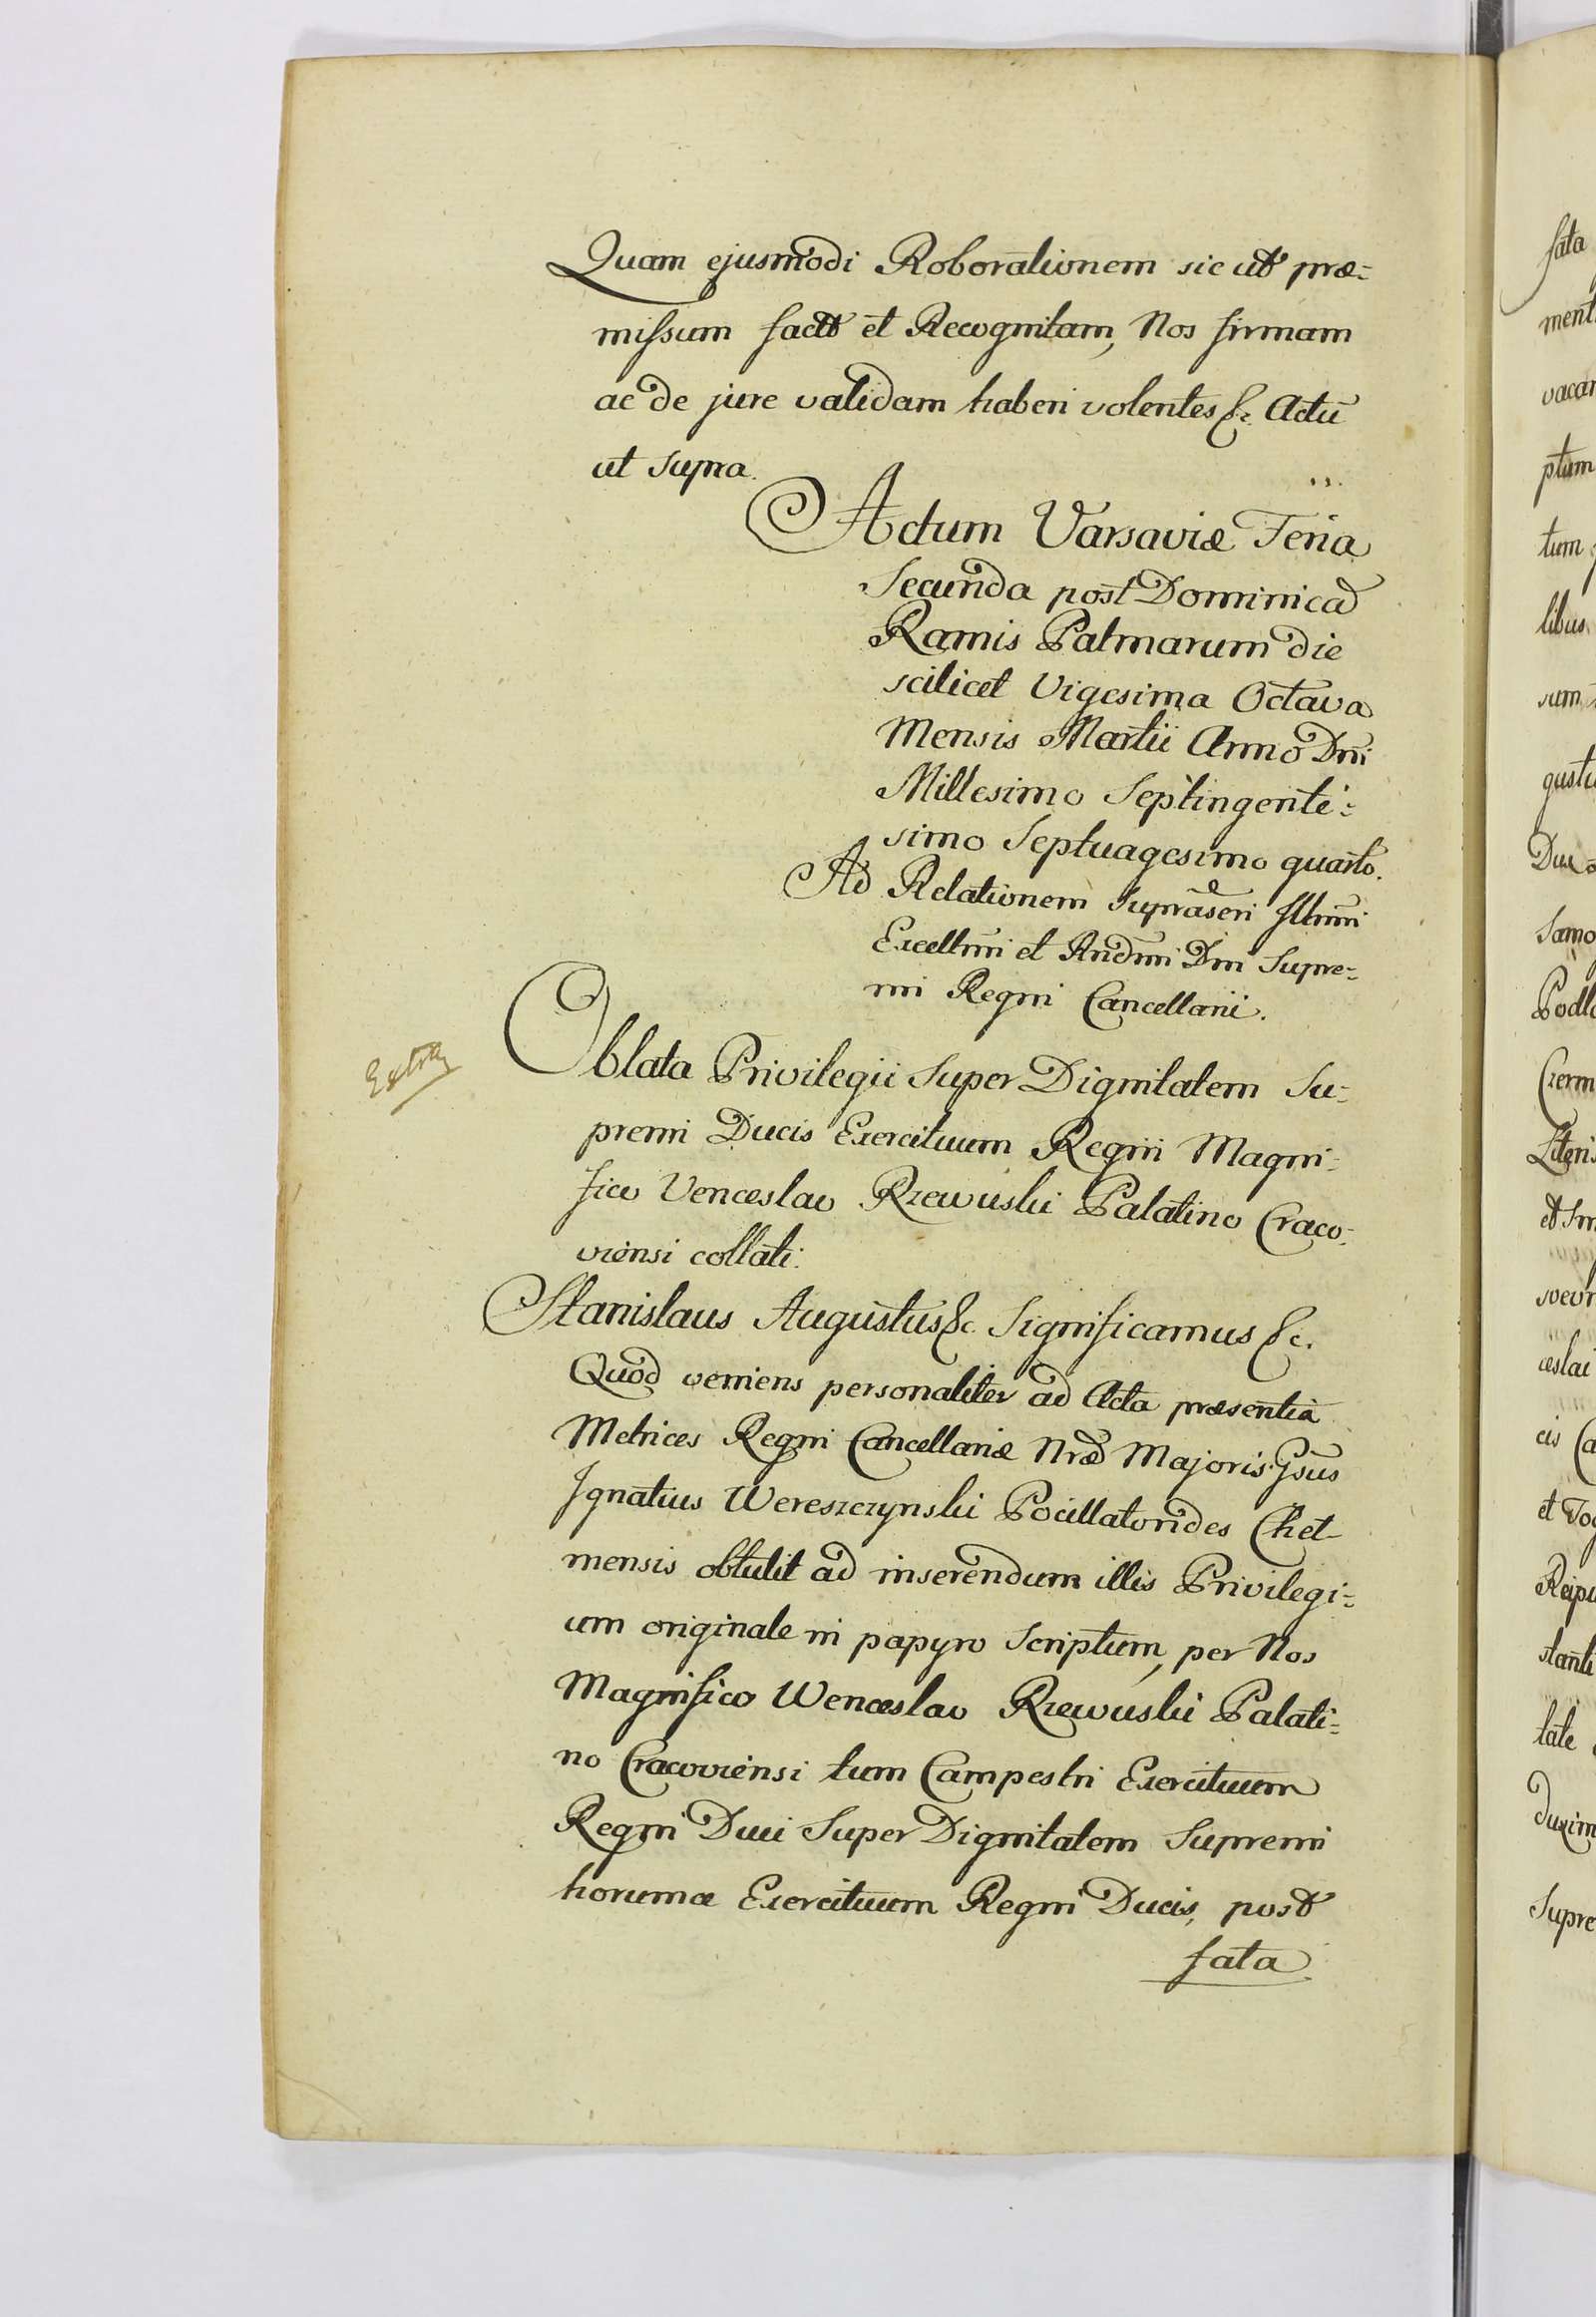 Quam ejusmodi Roborationem sic ut præ=
missum fact et Recognitam, Nos firmam
ac de jure validam haberi volentes &c. Actū
ut supra.
Actum Varsaviæ Feria
Secunda post Dominicā
Ramis Palmarum die
scilicet Vigesima Octava
Mensis Martii Anno Dni
Millesimo Septingente=
simo Septuagesimo quarto.
Ad Relationem Suprascri Illmi
Excellmi et Rndmi Dni Supre=
mi Regni Cancellarii.
Oblata Privilegii Super Dignitatem Su=
premi Ducis Exercituum Regni Magni=
fico Venceslao Rzewuski Palatino Craco=
viensi collati:
Stanislaus Augustus &c. Significamus &c.
Quod veniens personaliter ad Acta præsentia
Metrices Regni Cancellariæ Nræ Majoris Gsus
Ignatius Wereszczynski Pocillatorides Chel-
mensis obtulit ad inserendum illis Privilegi=
um originale in papyro Scriptum, per Nos
Magnifico Wenceslao Rzewuski Palati=
no Cracoviensi tum Campestri Exercituum
Regni Duci Super Dignitatem Supremi
horumce Exercituum Regni Ducis, post
fata
fata
ment
vacan
ptum
tum
libus
sum
gustu
Dux
Samo
Podla
Czerm
Literis
et Sm
soevr
eslai
cis Ca
et Tog
Reipu
stanti
tate
duxim
Supre